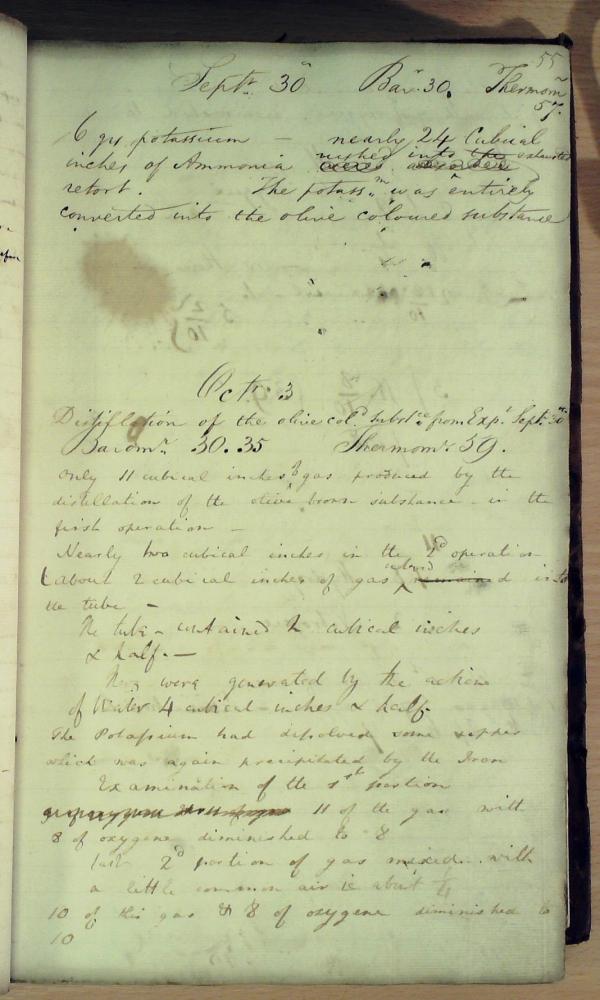 55
Septr. 30 Bar. 30. Thermom
57.
6 grs potassium — nearly 24 Cubical
inches of Ammonia rushed into the exhausted
retort. The potassm. was entirely
converted into the olive coloured substance
Octr. 3
Distillation of the olive cold substce from Expt. Sept. 30
Baromr. 30.35 Thermomr 59.
only 11 cubical inches of gas produced by the
distillation of the olive brown substance in the
first operation —
Nearly two cubical inches in the 2d operation
about 2 cubical inches of gas remained into
the tube —
The tube contained 2 cubical inches
& half. —
There were generated by the action
of Water 4 cubical inches & half
The Potassium had dissolved some copper
which was again precipitated by the Iron
Examination of the 1st portion
11 of the gas with
8 of oxygene diminished to 8
last 2d portion of gas mixed with
a little common air ie about
10 of this gas & 8 of oxygene diminished to
10